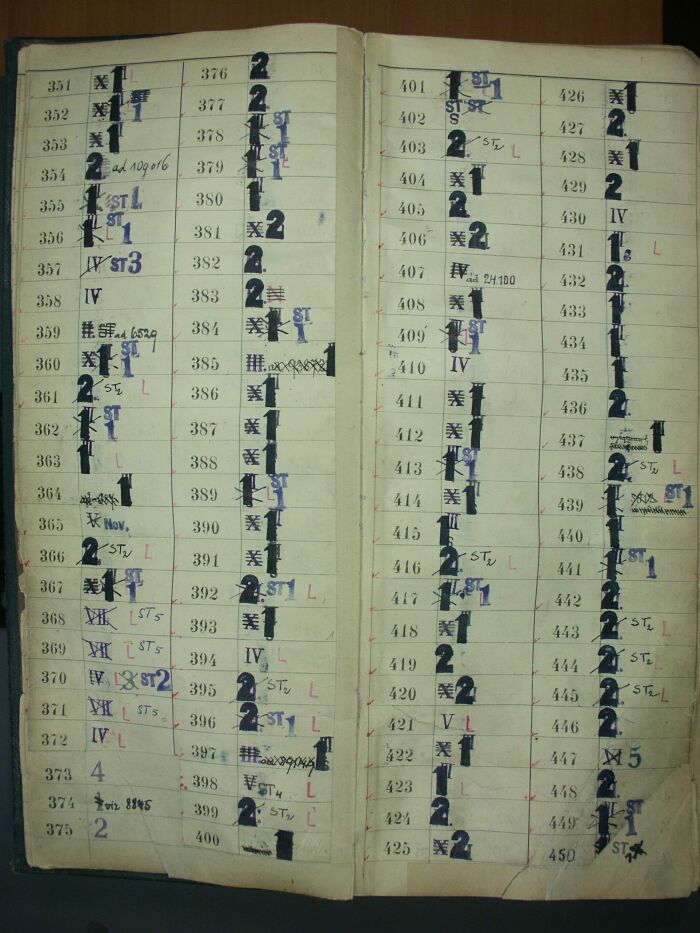 351 X 1 L
352 X 1 ST 1
353 X 1
354 2 ad 109016
355 1 ST 1
356 1 ST 1
357 IV ST 3
358 IV
359 II. ad 6529
360 X 1 ST 1
361 2 ST2 L
362 1 ST 1
363 1 L
364 1
365 V Nov.
366 2 ST2 L
367 X 1 ST 1
368 VII. L ST5
369 VII L ST5
370 IV L ST2
371 VII L ST5
372 IV L
373 4
374 viz 8845
375 2
376 2
377 2
378 1 ST 1
379 1 ST 1
380 1
381 X 2
382 2.
383 2
384 X 1 ST 1
385 III. 1
386 X 1
387 X 1
388 X 1
389 1 L ST 1
390 X 1
391 X 1
392 2. ST 1 L
393 X 1
394 IV L
395 2 ST2 L
396 2 ST 1 L
397 III. 1
398 V ST4 L
399 2. ST2 L
400 1
401 1 ST 1
402 ST ST S
403 2 ST2 L
404 X 1
405 2
406 X 2
407 IV ad 24.100
408 X 1
409 1 ST 1
410 IV
411 X 1
412 X 1
413 1 ST 1
414 X 1
415 1
416 2 ST2 L
417 1. ST 1
418 X 1
419 2
420 X 2
421 V L
422 X 1
423 1 L
424 2
425 X 2
426 X 1
427 2.
428 X 1
429 2
430 IV
431 1. L
432 2.
433 1
434 1
435 1
436 2
437 1
438 2 ST2 L
439 1 L ST1
440 1
441 1 ST 1
442 2.
443 2. ST2 L
444 2. ST2 L
445 2. ST2 L
446 2
447 XI 5
448 2.
449 1 ST 1
450 ST